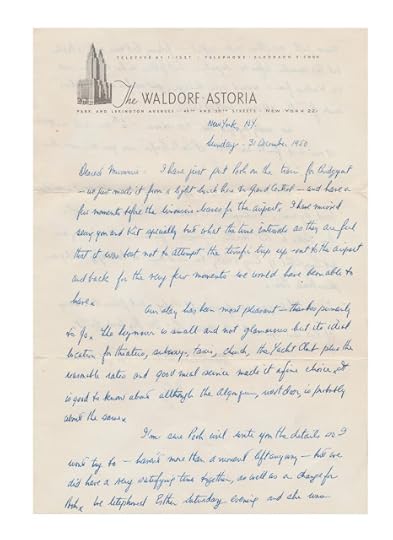 TELETYPE NY 1-
TELEPHONE: ELDORADO 5-3000
The WALDORF-ASTORIA
PARK AND LEXINGTON AVENUES · 49TH AND 50TH STREETS · NEW YORK 22
New York, N.Y.
Sunday - 31 December 1950.
Dearest : I have just put Pooh on the train for
- we just made it from a light lunch here to Grand Central - and have a
few moments before the limousine leaves for the airport. I have missed
seeing you and but what the time intervals as they are feel
that it was best not to attempt the trip up - out to the airport
and back for the very few moments we would have been able to
have.
Our day has been most pleasant - thanks primarily
to Jo. The Seymour is small and not glamourous but its ideal
location for theatres, subways, taxis, church, the Yacht Club plus the
reasonable rates and good meal service made it a fine choice. It
is good to know about although the Algonquin, next door, is probably
about the same.
I'm sure Pooh will write you the details so I
won't try to - haven't more than a moment left anyway - but we
did have a very satisfying time together, as well as a change for
Pooh. We telephoned Esther Saturday evening and she was